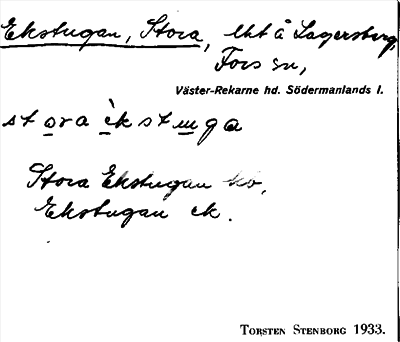 Ekstugan, Stora, lht å Lagersberg,
Fors sn,
Väster-Rekarne hd. Södermanlands l.
stora èkstuga
Stora Ekstugan ko,
Ekstugan ek.
TORSTEN STENBORG 1933.